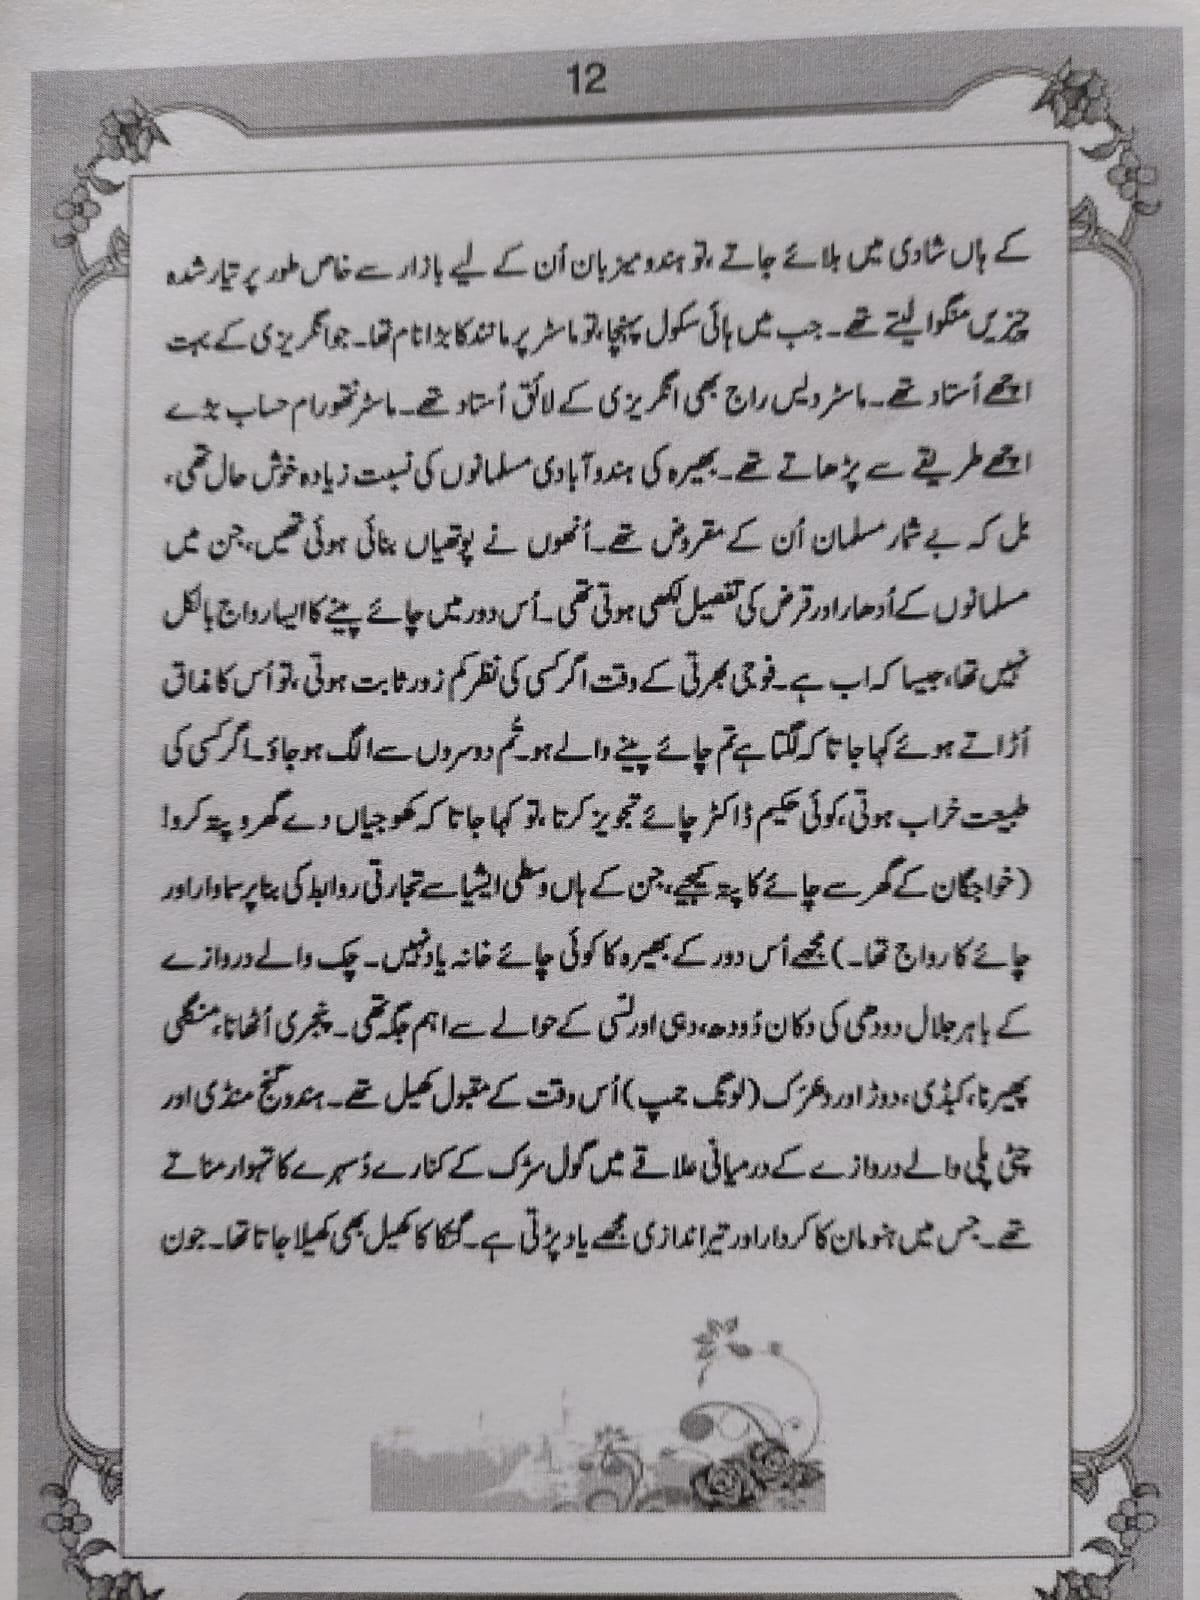 12
کے ہاں شادی میں بلائے جاتے ،تو ہندو میزبان اُن کے لیے بازار سے خاص طور پر تیار شدہ
چیزیں منگوا لیتے تھے۔ جب میں ہائی سکول پہنچا،تو ماسٹر پرمانند کا بڑا نام تھا۔ جو انگریزی کے بہت
اچھے اُستاد تھے۔ ماسٹر دیس راج بھی انگریزی کے لائق اُستاد تھے۔ ماسٹر نتھو رام حساب بڑے
اچھے طریقے سے پڑھاتے تھے۔ بھیرہ کی ہندو آبادی مسلمانوں کی نسبت زیادہ خوش حال تھی،
بل کہ بے شمار مسلمان اُن کے مقروض تھے۔ اُنھوں نے پوتھیاں بنائی ہوئی تھیں، جن میں
مسلمانوں کے اُدھار اور قرض کی تفصیل لکھی ہوتی تھی۔ اُس دور میں چائے پینے کا ایسا رواج بالکل
نہیں تھا، جیسا کہ اب ہے۔ فوجی بھرتی کے وقت اگر کسی کی نظر کم زور ثابت ہوتی ،تو اُس کا مذاق
اُڑاتے ہوئے کہا جاتا کہ لگتا ہے تم چائے پینے والے ہو۔ تُم دوسروں سے الگ ہو جاؤ۔ اگر کسی کی
طبیعت خراب ہوتی ،کوئی حکیم ڈاکٹر چائے تجویز کرتا ،تو کہا جاتا کہ کھوجیاں دے گھرو پتہ کرو!
(خواجگان کے گھر سے چائے کا پتہ کیجیے، جن کے ہاں وسطی ایشیا سے تجارتی روابط کی بنا پر سماوار اور
چائے کا رواج تھا۔) مجھے اُس دور کے بھیرہ کا کوئی چائے خانہ یاد نہیں۔ چک والے دروازے
کے باہر جلال دودھی کی دکان دُودھ، دہی اور لسّی کے حوالے سے اہم جگہ تھی۔ پنجری اُٹھانا، منگلی
پھیرنا، کبڈی، دوڑ اور دھڑک (لونگ جمپ) اُس وقت کے مقبول کھیل تھے۔ ہندو گنج منڈی اور
چٹی پلی والے دروازے کے درمیانی علاقے میں گول سڑک کے کنارے دُسہرے کا تہوار مناتے
تھے۔ جس میں ہنومان کا کردار اور تیر اندازی مجھے یاد پڑتی ہے۔ گتکا کا کھیل بھی کھیلا جاتا تھا۔ جون